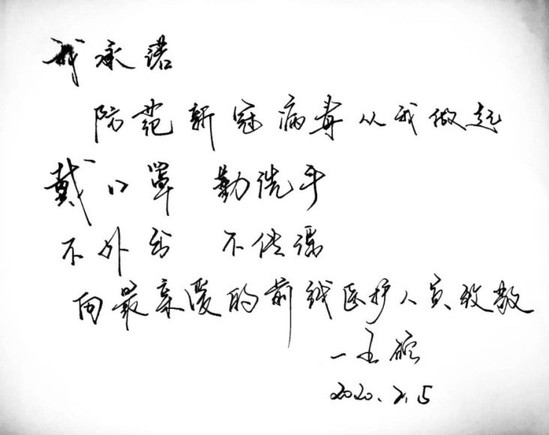 我承诺
防范新冠病毒从我做起
戴口罩 勤洗手
不外出 不传谣
向最亲爱的前线医护人员致敬
2020.2.5